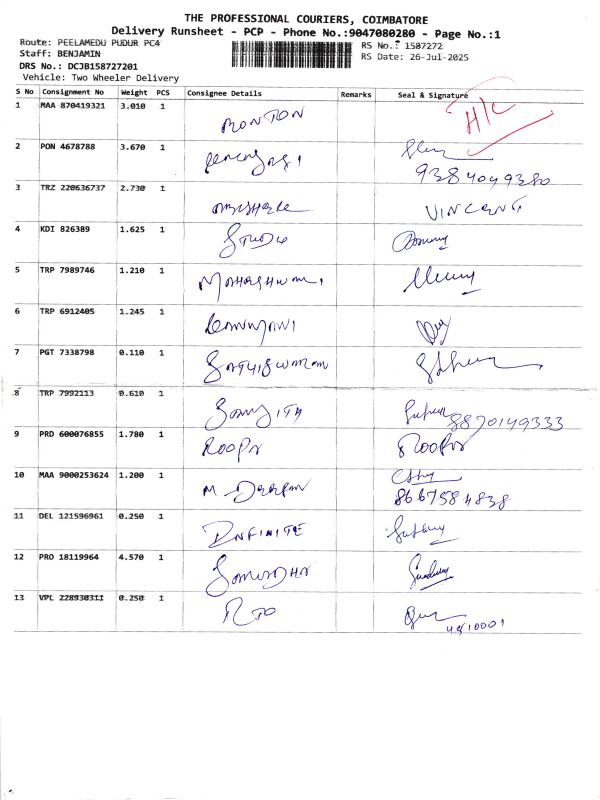 THE PROFESSIONAL COURIERS, COIMBATORE
Delivery Runsheet - PCP - Phone No.:9047080280 - Page No.:1
Route: PEELAMEDU PUDUR PC4
RS No.: 1587272
Staff: BENJAMIN
RS Date: 26-Jul-2025
DRS No.: DCJB158727201
Vehicle: Two Wheeler Delivery
S No Consignment No Weight PCS Consignee Details Remarks Seal & Signature
1 MAA 870419321 3.010 1 RONTON H/C
2 PON 4678788 3.670 1
9384049380
3 TRZ 220636737 2.730 1 VINCENT
4 KDI 826389 1.625 1 STUDIO
5 TRP 7989746 1.210 1
6 TRP 6912405 1.245 1
7 PGT 7338798 0.110 1
8 TRP 7992113 0.610 1
8870149333
9 PRD 600076855 1.780 1 ROOPA ROOPA
10 MAA 9000253624 1.200 1
8667584838
11 DEL 121596961 0.250 1 INFINITE
12 PRO 18119964 4.570 1
13 VPL 228930311 0.250 1 RTO